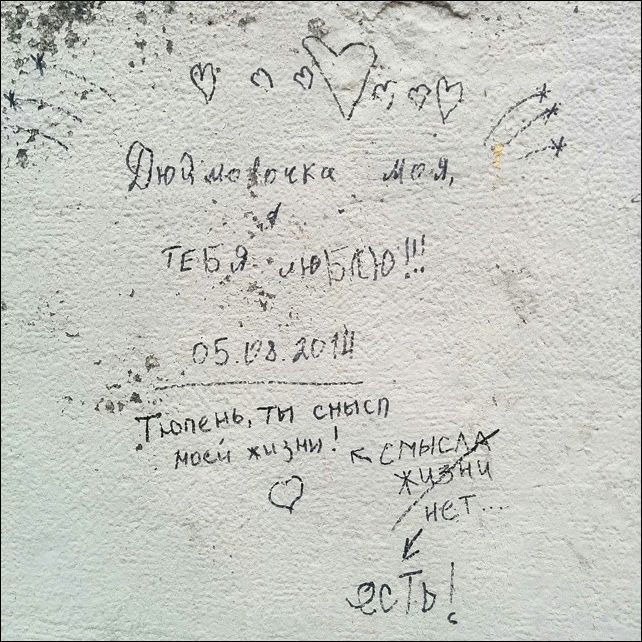 Дюймовочка моя,
я
ТЕБЯ ЛЮБЛЮ!!!
05.08.2014
Тюлень, ты смысл
моей жизни!
СМЫСЛА
ЖИЗНИ
НЕТ...
есть!